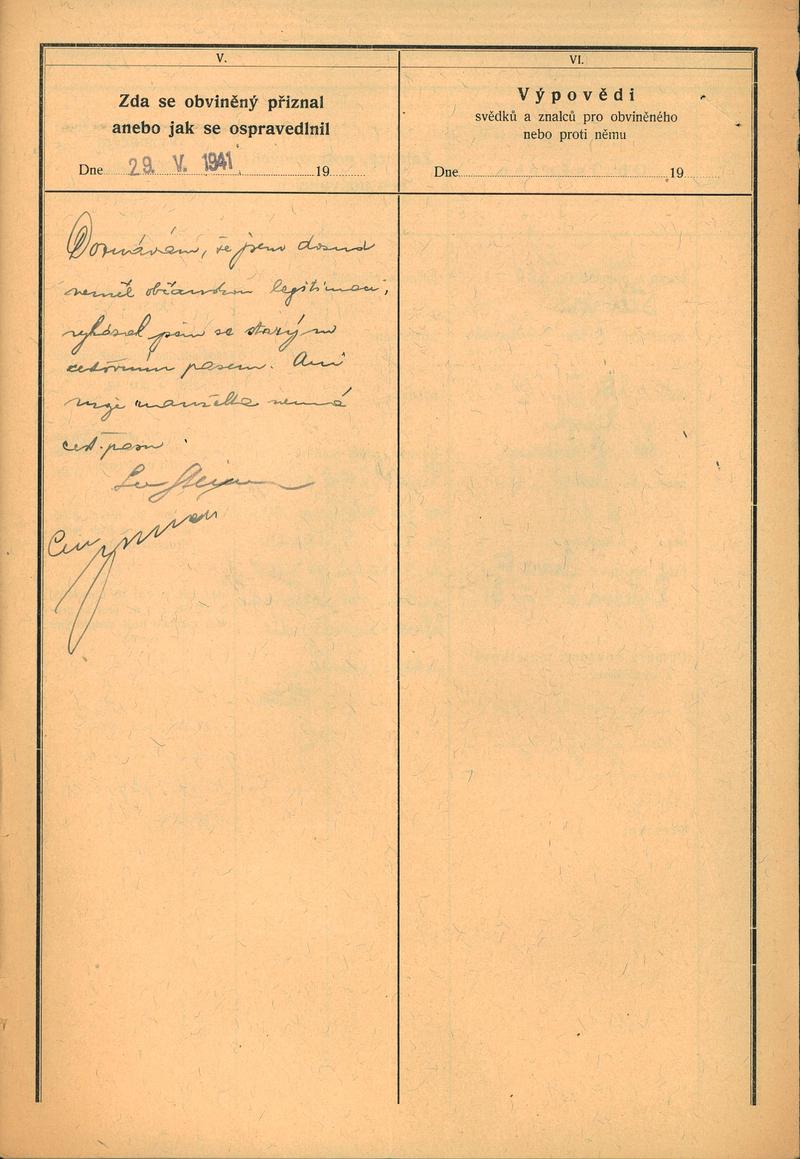 V.
Zda se obviněný přiznal
anebo jak se ospravedlnil
Dne 29. V. 1941 19
Doznávám, že jsem dosud
neměl občanskou legitimaci,
vykázal jsem se starým
cestovním pasem. Ani
moje manželka nemá
cest. pasu.
VI.
Výpovědi
svědků a znalců pro obviněného
nebo proti němu
Dne 19